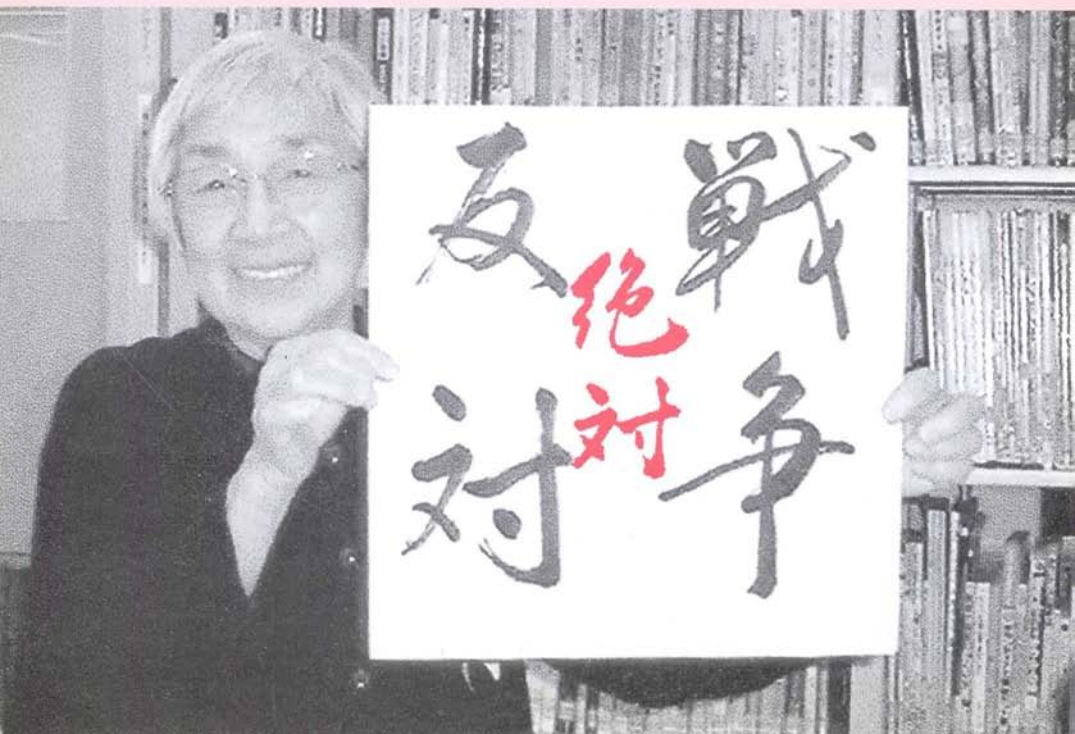 戦争
絶対
反対